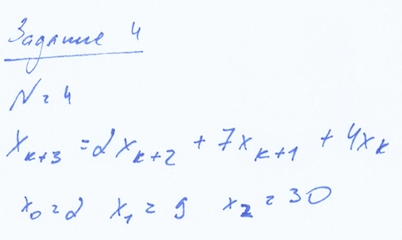 Задание 4
N = 4
x_{k+3} = 2x_{k+2} + 7x_{k+1} + 4x_k
x_0 = 2 x_1 = 9 x_2 = 30